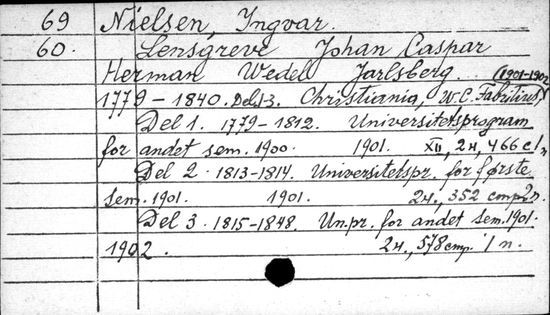 69 Nielsen, Ingvar.
60. Lensgreve Johan Caspar
Herman Wedel Jarlsberg. (1901-1902)
1779-1840. Del 1-3. Christiania, W.C. Fabritius.
Del 1. 1779-1812. Universitetsprogram
for andet sem. 1900. 1901. XII, 2H, 466
Del 2. 1813-1814. Universitetspr. for første
sem. 1901. 1901. 2H., 352
Del 3. 1815-1848. Un.pr. for andet sem. 1901.
1902. 2H., 578 / n.